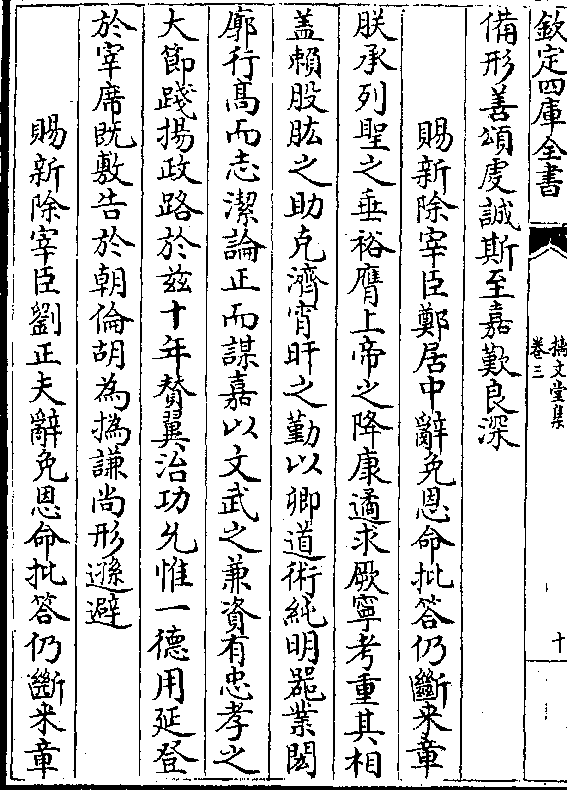 欽定四庫全書
摛文堂集
卷三
十
備形善頌虔誠斯至嘉歎良深
賜新除宰臣鄭居中辭免恩命批答仍斷来章
朕承列聖之垂裕膺上帝之降康遹求厥寧考重其相
盖賴股肱之助克濟宵旰之勤以卿道術純明器業閎
廓行髙而志潔論正而謀嘉以文武之兼資有忠孝之
大節踐揚政路於兹十年賛翼治功允惟一德用延登
於宰席既敷告於朝倫胡為撝謙尚形遜避
賜新除宰臣劉正夫辭免恩命批答仍斷来章